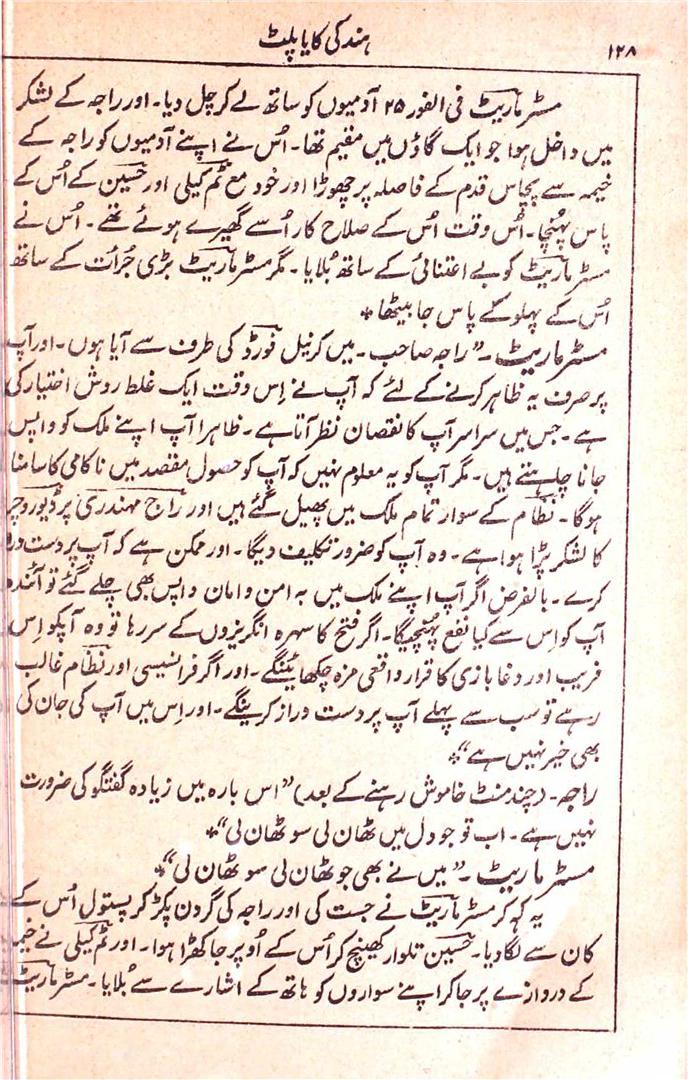 ۱۲۸
ہند کی کایا پلٹ
مسٹر ماریٹ فی الفور ۲۵ آدمیوں کو ساتھ لے کر چل دیا۔ اور راجہ کے لشکر
میں داخل ہوا جو ایک گاؤں میں مقیم تھا۔ اُس نے اپنے آدمیوں کو راجہ کے
خیمہ سے پچاس قدم کے فاصلہ پر چھوڑا اور خود مع ٹم کیلی اور حسین کے اُس کے
پاس پہنچا۔ اُس وقت اُس کے صلاح کار اُسے گھیرے ہوئے تھے۔ اُس نے
مسٹر ماریٹ کو بے اعتنائی کے ساتھ بُلایا۔ مگر مسٹر ماریٹ بڑی جُرأت کے ساتھ
اُس کے پہلو کے پاس جا بیٹھا٭
مسٹر ماریٹ۔ ”راجہ صاحب۔ میں کرنیل فورڈ کی طرف سے آیا ہوں۔ اور آپ
پر صرف یہ ظاہر کرنے کے لئے کہ آپ نے اِس وقت ایک غلط روش اختیار کی
ہے۔ جس میں سراسر آپ کا نقصان نظر آتا ہے۔ ظاہرا آپ اپنے ملک کو واپس
جانا چاہتے ہیں۔ مگر آپ کو یہ معلوم نہیں کہ آپ کو حصول مقصد میں ناکامی کا سامنا
ہوگا۔ نظام کے سوار تمام ملک میں پھیل گئے ہیں اور راج مہندری پر
کا لشکر پڑا ہوا ہے۔ وہ آپ کو ضرور تکلیف دیگا۔ اور ممکن ہے کہ آپ پر دست
کرے۔ بالفرض اگر آپ اپنے ملک میں بہ امن و امان واپس بھی چلے گئے تو آئندہ
آپ کو اِس سے کیا نفع پہنچیگا۔ اگر فتح کا سہرہ انگریزوں کے سر رہا تو وہ آپکو اِس
فریب اور دغا بازی کا قرار واقعی مزہ چکھائینگے۔ اور اگر فرانسیسی اور نظام غالب
رہے تو سب سے پہلے آپ پر دست دراز کرینگے۔ اور اِس میں آپ کی جان کی
بھی خیر نہیں ہے“٭
راجہ۔ (چند منٹ خاموش رہنے کے بعد) ”اس بارہ میں زیادہ گفتگو کی ضرورت
نہیں ہے۔ اب تو جو دل میں ٹھان لی سو ٹھان لی“٭
مسٹر ماریٹ۔ ”میں نے بھی جو ٹھان لی سو ٹھان لی“٭
یہ کہ کر مسٹر ماریٹ نے جست کی اور راجہ کی گردن پکڑ کر پستول اُس کے
کان سے لگا دیا۔ حسین تلوار کھینچ کر اُس کے اُوپر جا کھڑا ہوا۔ اور ٹم کیلی نے
کے دروازے پر جا کر اپنے سواروں کو ہاتھ کے اشارے سے بُلایا۔ مسٹر ماریٹ